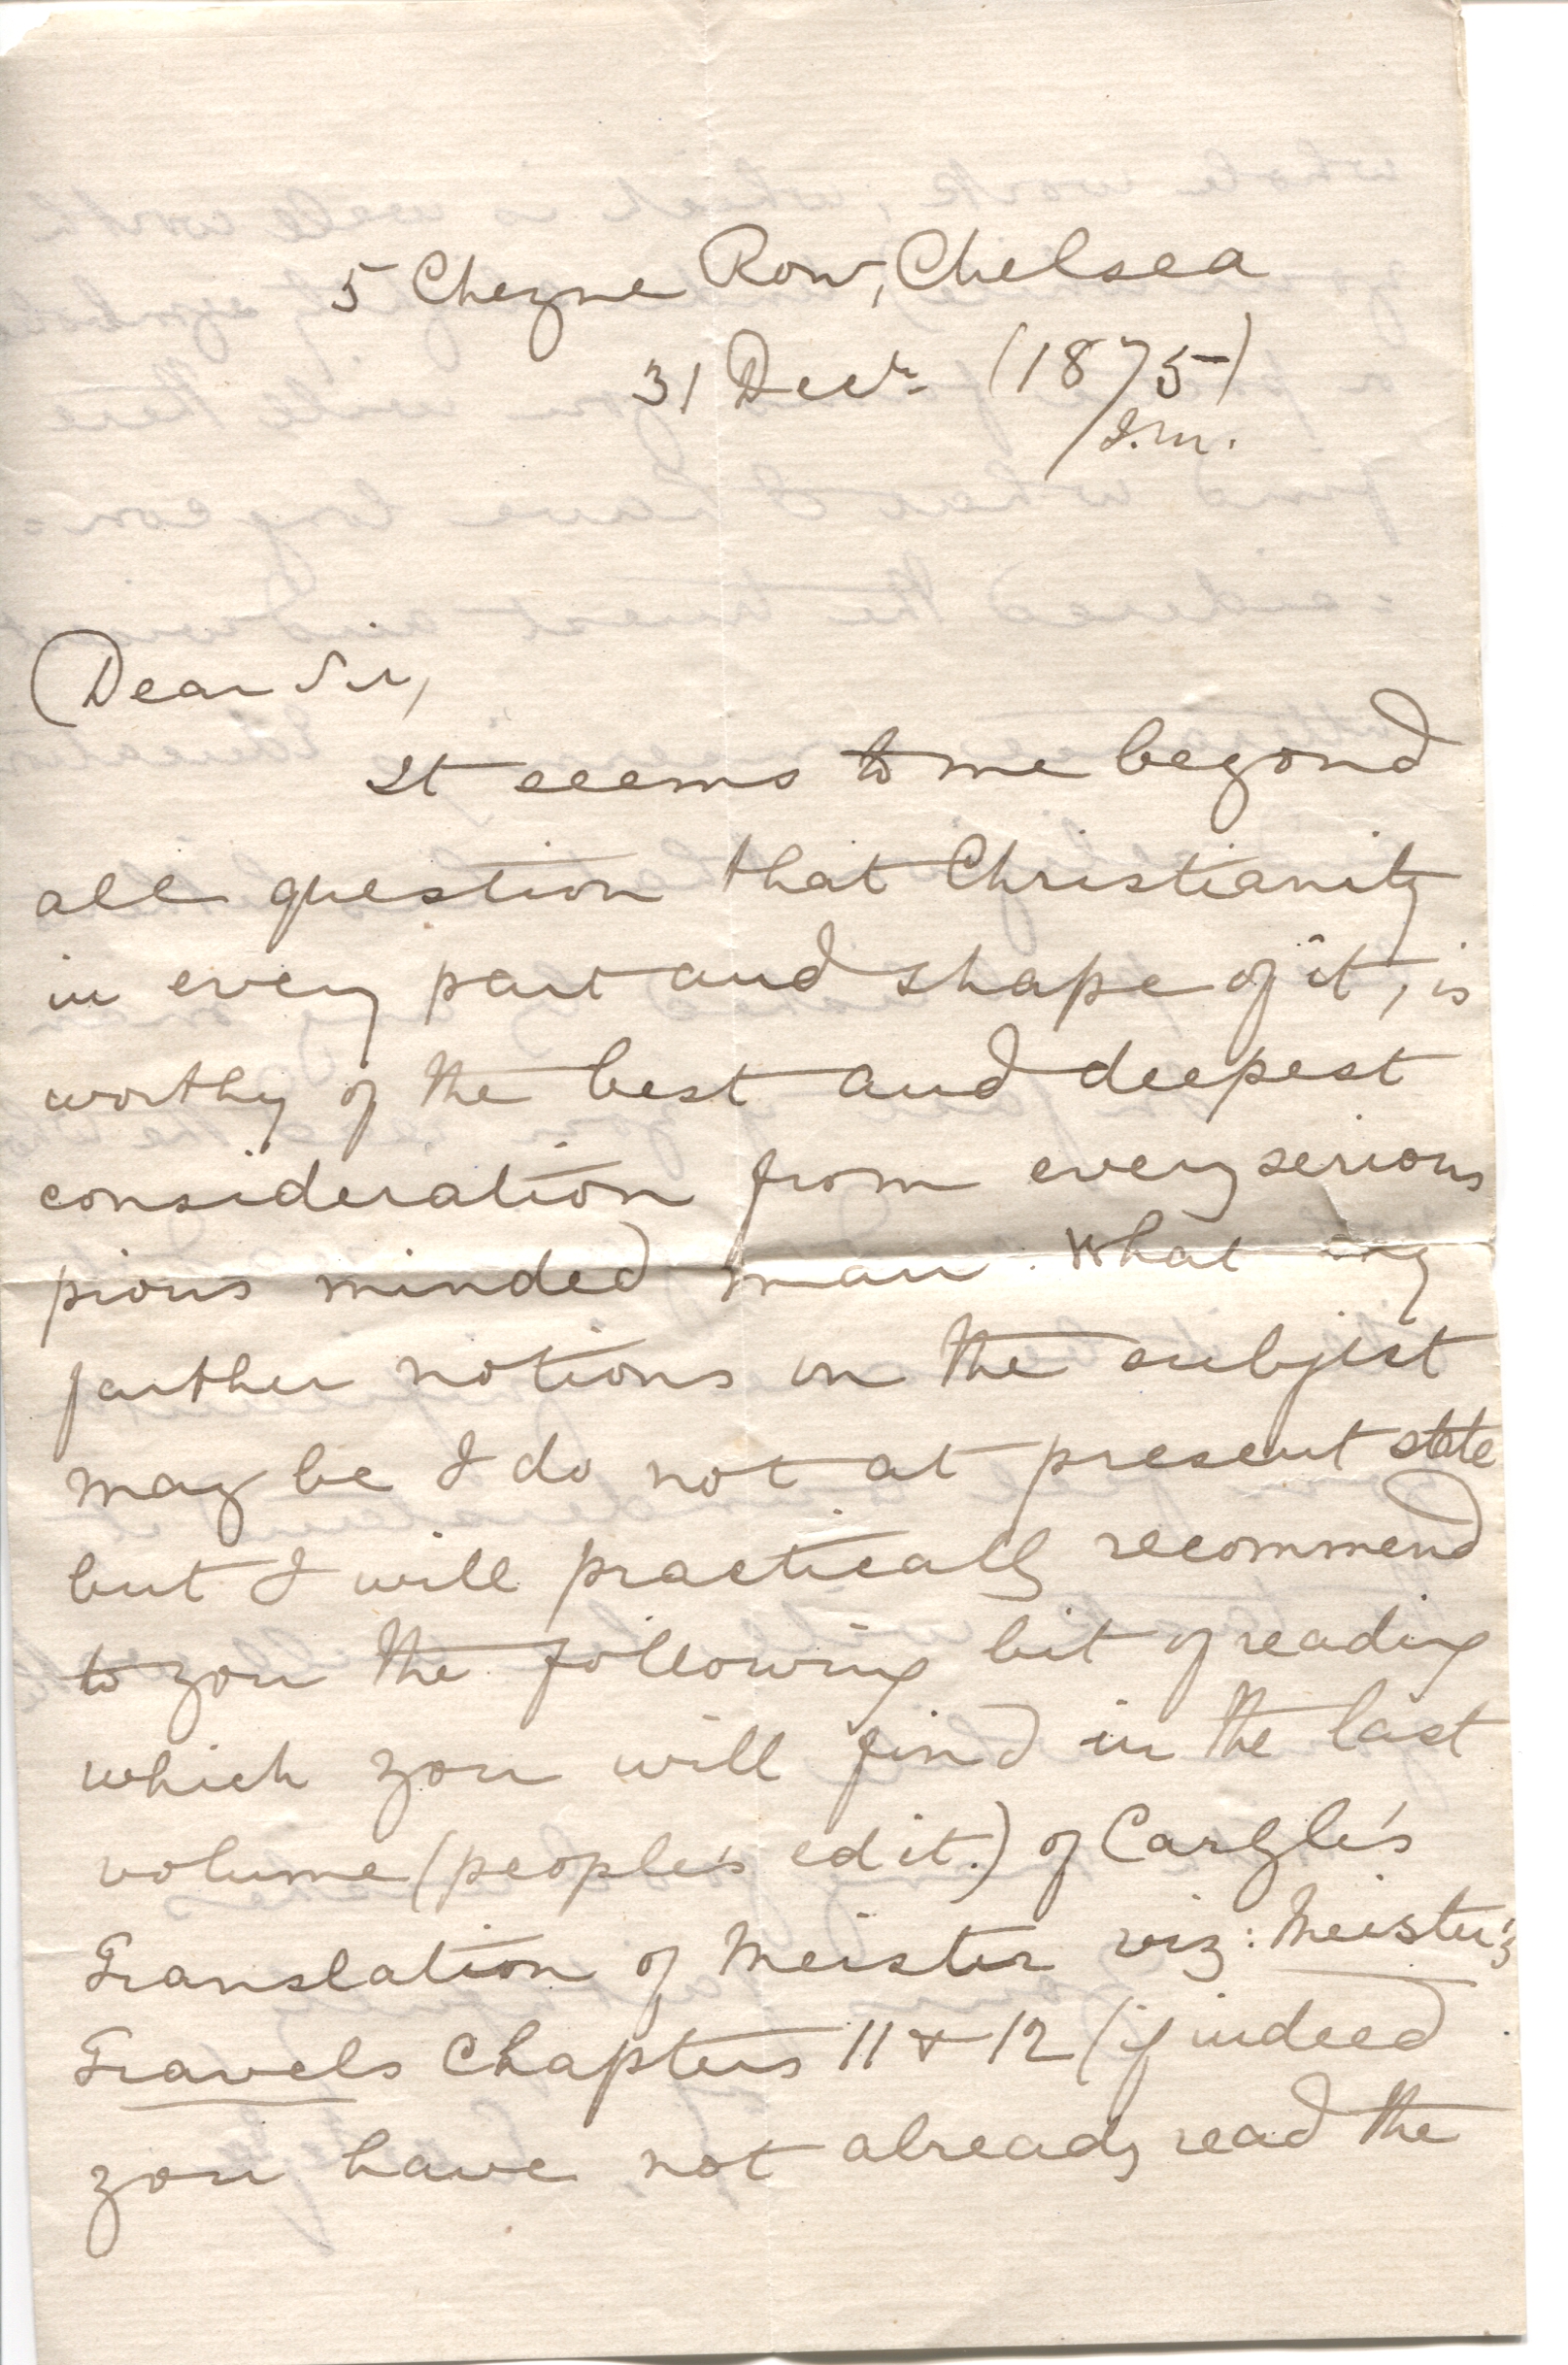 5 Cheyne Row, Chelsea
31 Decr. (1875)
Dear Sir,
It seems to me beyond
all question that Christianity
in every part and shape of it, is
worthy of the best and deepest
consideration from every serious
pious minded man. What my
farther notions on the subject
may be I do not at present state
but I will practically recommend
to you the following bit of reading
which you will find in the last
volume (people's edit.) of Carlyle's
Translation of Meister viz: Meister's
Travels Chapters 11 & 12 (if indeed
you have not already read the